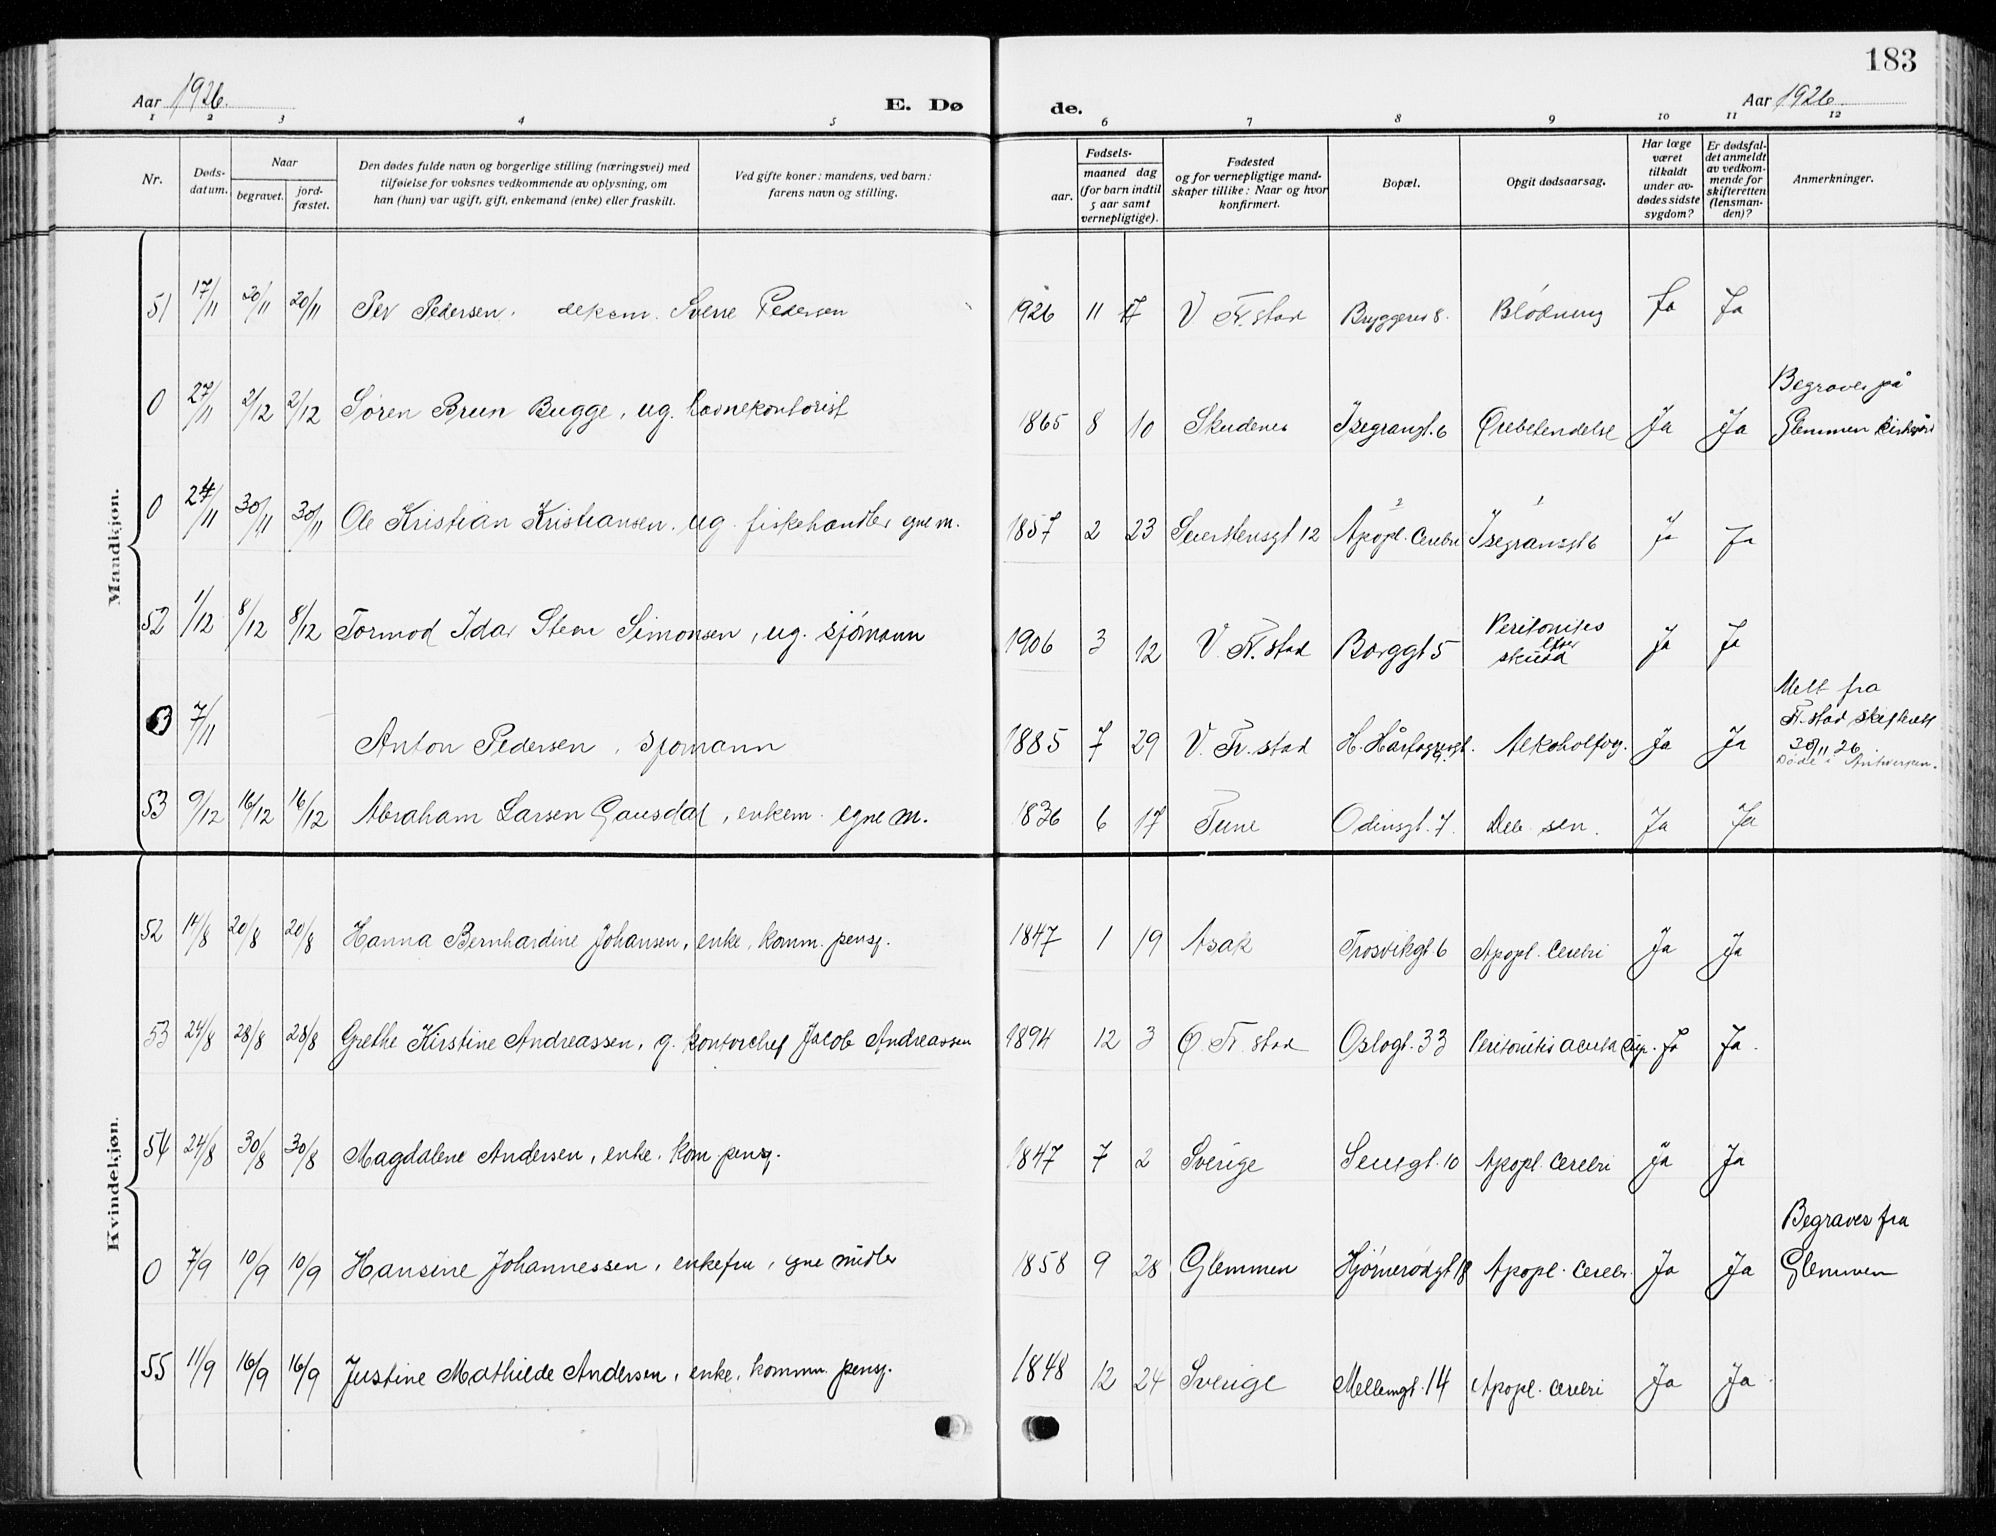 183
Aar 1926. E. Dø de. Aar 1926.
1 2 3 4 5 6 7 8 9 10 11 12
Nr.
Døds-
datum.
Naar
begravet.
jord-
fæstet.
Den dødes fulde navn og borgerlige stilling (næringsvei) med
tilføielse for voksnes vedkommende av oplysning, om
han (hun) var ugift, gift, enkemand (enke) eller fraskilt.
Ved gifte koner: mandens, ved barn:
farens navn og stilling.
Fødsels-
aar.
maaned dag
(for barn indtil
5 aar samt
vernepligtige).
Fødested
og for vernepligtige mand-
skaper tillike: Naar og hvor
konfirmert.
Bopæl.
Opgit dødsaarsag.
Har læge
været
tilkaldt
under av-
dødes sidste
sygdom?
Er dødsfal-
det anmeldt
av vedkom-
mende for
skifteretten
(lensman-
den)?
Anmerkninger.
Mandkjøn.
51 17/11 20/11 20/11 Per Pedersen. Sverre Pedersen 1926 11 17 V Fr.stad Bryggeres 8. Blödning Ja Ja
0 27/11 2/12 2/12 Søren Brun Bugge, ug. havnekontorist 1865 8 10 Skudenes Isegrangt. 6 Ja Ja Begraves på
Glemmen
0 24/11 30/11 30/11 Ole Kristian Kristiansen. ug. fiskehandler egne m. 1857 2 23 12 Apopl. Cerebri Isegransgt 6 Ja Ja
52 1/12 8/12 8/12 Tormod Idar Simonsen, ug. sjömann 1906 3 12 V. Fr.stad Borggt 5 Peritonites
efter
skudd Ja Ja
7/11 Anton Pedersen, sjømann 1885 7 29 V. Fr.stad Alkoholforg. Ja Ja Melt fra
Fr.stad skifterett
30/11 26.
Døde i Antwerpen.
53 9/12 16/12 16/12 Abraham Larsen Gausdal, enkem. egne m. 1836 6 17 Tune Odinsgt. 7. Deb. sen. Ja Ja
Kvindekjøn.
52 14/8 20/8 20/8 Hanna Bernhardine Johansen, enke, komm. pensj. 1847 1 19 Asak Trosvikgt 6 Apopl. Cerebri Ja Ja
53 24/8 28/8 28/8 Grethe Kirstine Andreassen, g. kontorchef Jacob Andreassen 1894 12 3 Ö. Fr.stad Oslogt. 33 Peritonitis acuta Ja Ja.
54 24/8 30/8 30/8 Magdalene Andersen, enke. kom. pensj. 1847 7 2 Sverige 10 Apopl. Cerebri Ja Ja
0 7/9 10/9 10/9 Hansine Johannessen, enkefru, egne midler 1858 9 28 Glemmen Hjörnerödgt 18 Apopl. Cerebr. Ja Ja Begraves fra
Glemmen
55 11/9 16/9 16/9 Justine Mathilde Andersen, enke, kommn. pensj. 1848 12 24 Sverige Mellemgt. 14 Apopl. Cerebri Ja Ja